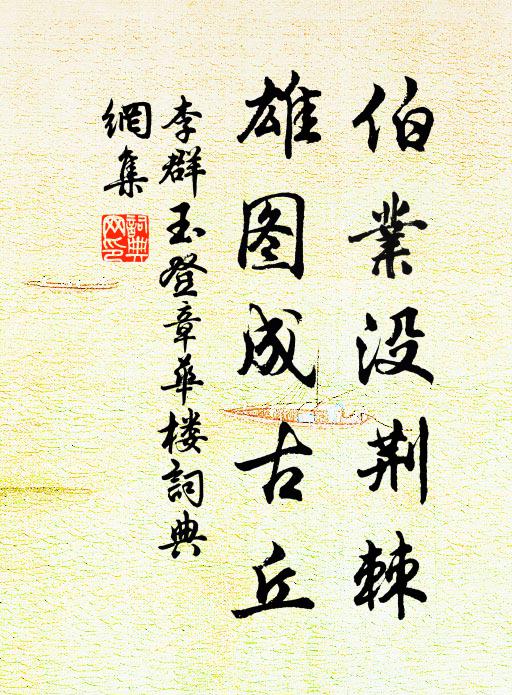 伯業没荆棘
雄图成古丘
李群玉登章华楼詞典
網集
詞典
网印